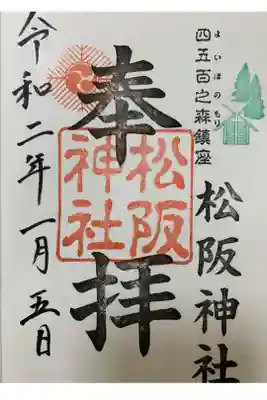 四五百之森鎮座
よいほのもり
松阪神社
奉拝
松阪神社
令和二年一月五日